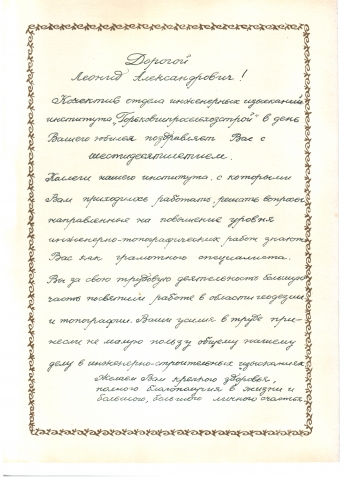 Дорогой
Леонид Александрович!
Коллектив отдела инженерных изысканий
института "Горьковгипросельхозстрой" в день
Вашего юбилея поздравляет Вас с
шестидесятилетием.
Коллеги нашего института, с которыми
Вам приходилось работать, решать вопросы
направленные на повышение уровня
инженерно-топографических работ знают
Вас как грамотного специалиста.
Вы за свою трудовую деятельность большую
часть посвятили работе в области геодезии
и топографии. Ваши усилия в труде при-
несли не малую пользу общему нашему
делу в инженерно-строительных изысканиях.
Желаем Вам крепкого здоровья,
полного благополучия в жизни и
большого, большого личного счастья.